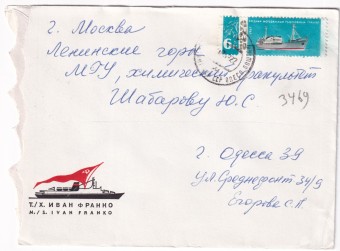 г. Москва
Ленинские горы
МГУ, химический факультет
Шабарову Ю.С.
3469
г. Одесса 39
ул. Среднефонт 34/9
Егорова С.Л
Т/Х. ИВАН ФРАНКО
M/S. IVAN FRANKO
6